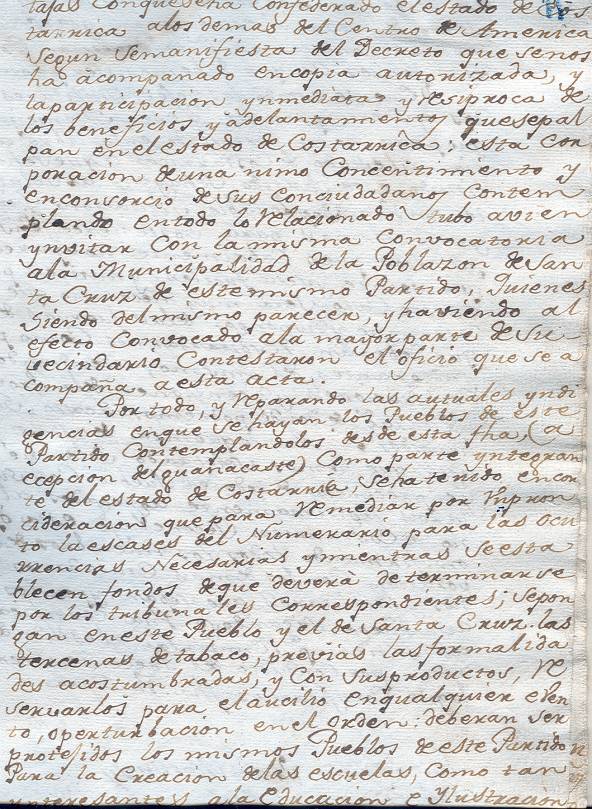 tajas conque se ha Confederado el estado de Cos
tarrica alos demas del Centro de America
segun semanifiesta del Decreto que senos
ha acompañado encopia autorizada, y
laparticipacion ynmediata y resiproca de
los beneficios y adelantamientos quesepal
pan en el estado de Costarrica: esta cor
poracion de una nimo Concentimiento y
enconsorcio de sus Conciudadanos Contem
plando entodo lo relacionado tubo avien
ynvitar con la misma convocatoria
ala Municipalidad de la Poblazon de San
ta Cruz de este mismo Partido, Quienes
siendo del mismo parecer, y haviendo al
efecto Convocado ala mayor parte de su
vecindario Contestaron el oficio que se a
compaña a esta acta.
Por todo, y reparando las actuales yndi
gencias enque se hayan los Pueblos de este
Partido Contemplandolos desde esta fha, (a
ecepcion del guanacaste) Como parte yntegran
te del estado de Costarrica, se ha tenido encon
cideracion que para remediar por unpron
to la escases del Numerario para las ocu
rrencias Necesarias ymientras se esta
blecen fondos de que deverà determinarse
por los tribunales Correspondientes; sepon
gan en este Pueblo y el de Santa Cruz las
tercenas de tabaco, previas las formalida
des acostumbradas, y con susproductos, re
servarlos para el aucilio enqualquier even
to, operturbacion en el orden: deberan ser
protejidos los mismos Pueblos de este Partido
Para la Creacion de las escuelas, Como tan
ynteresantes ala Educacion e Ylustracion